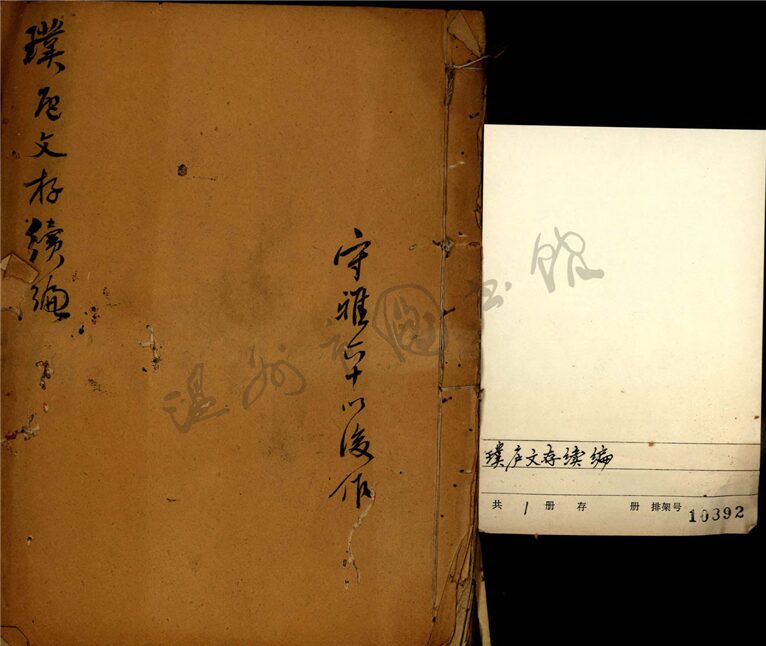 璞庐文存續编
守雅六十以後作
温州市图书馆
璞庐文存续编
共 1 册 存 册 排架号 10392